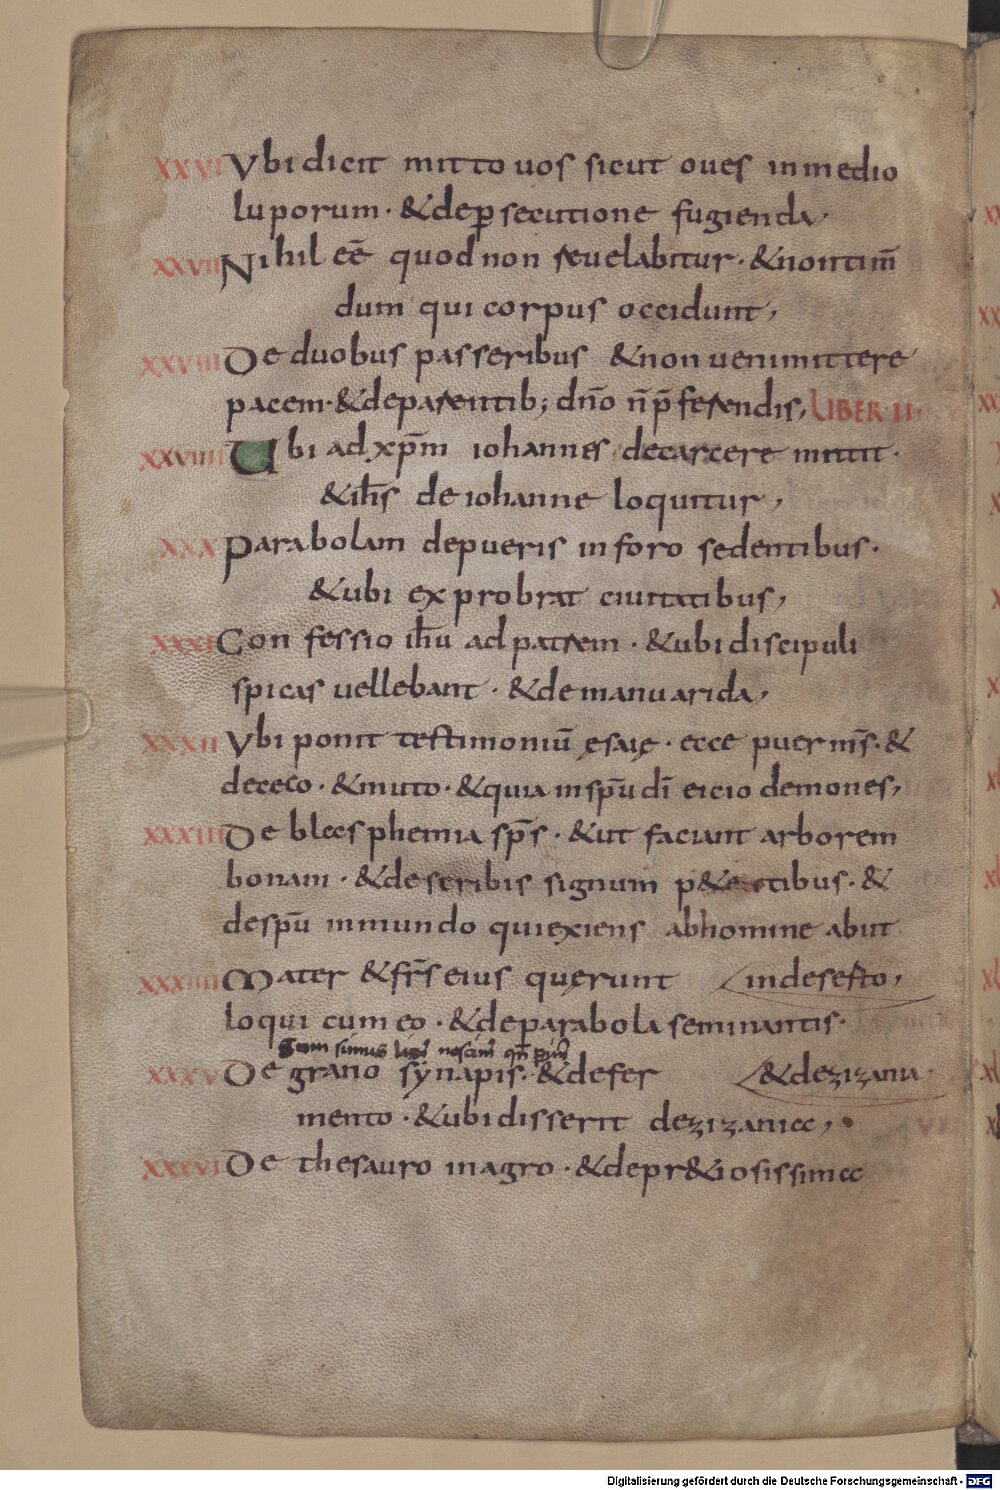 XXVI Vbi dicit mitto uos sicut oues inmedio
luporum · &deꝑsecutione fugienda,
XXVII Nihil eē quod non reuelabitur · &nontim̄
dum qui corpus occidunt,
XXVIII De duobus passeribus &non uenimittere
pacem · &deparentib; dn̄o n̄ p̄ferendis, LIBER II·
XXVIIII Ubi ad xp̄m iohannes decarcere mittit ·
&ih̄s de iohanne loquitur,
XXX Parabolam depueris inforo sedentibus ·
&ubi exprobrat ciuitatibus,
XXXI Confessio ih̄u ad patrem · &ubi discipuli
spicas uellebant · &de manu arida,
XXXII Vbi ponit testimoniū ęsaię · ecce puer m̄s · &
dececo · &muto · &quia inspū dī eicio demones,
XXXIII De blasphemia sp̄s · &ut faciant arborem
bonam · &describis signum p&entibus · &
despū inmundo quiexiens abhomine abiit
XXXIIII Mater &fr̄s eius quęrunt indeserto,
loqui cum eo · &deparabola seminantis ·
XXXV De grano synapis · &defer &dezizania ·
mento · &ubi disserit dezizania,
XXXVI De thesauro inagro · &depr&iosissima
Digitalisierung gefördert durch die Deutsche Forschungsgemeinschaft - DFG